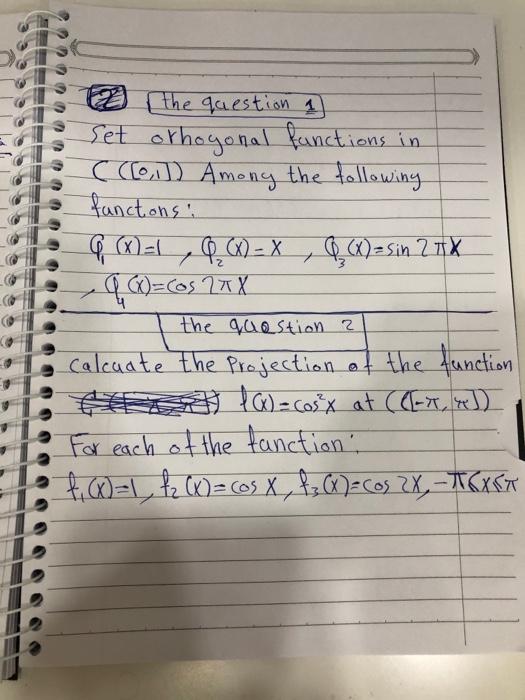 2 the question 1
Set orhogonal functions in
C ([0,1]) Among the following
functons:
φ₁(x)=1 , φ₂(x)=x , φ₃(x)=sin 2πx
, φ₄(x)=cos 2πx
the question 2
Calcuate the Projection of the function
f(x)=cos²x at C([-π, π])
For each of the function:
f₁(x)=1, f₂(x)=cos x, f₃(x)=cos 2x, -π≤x≤π